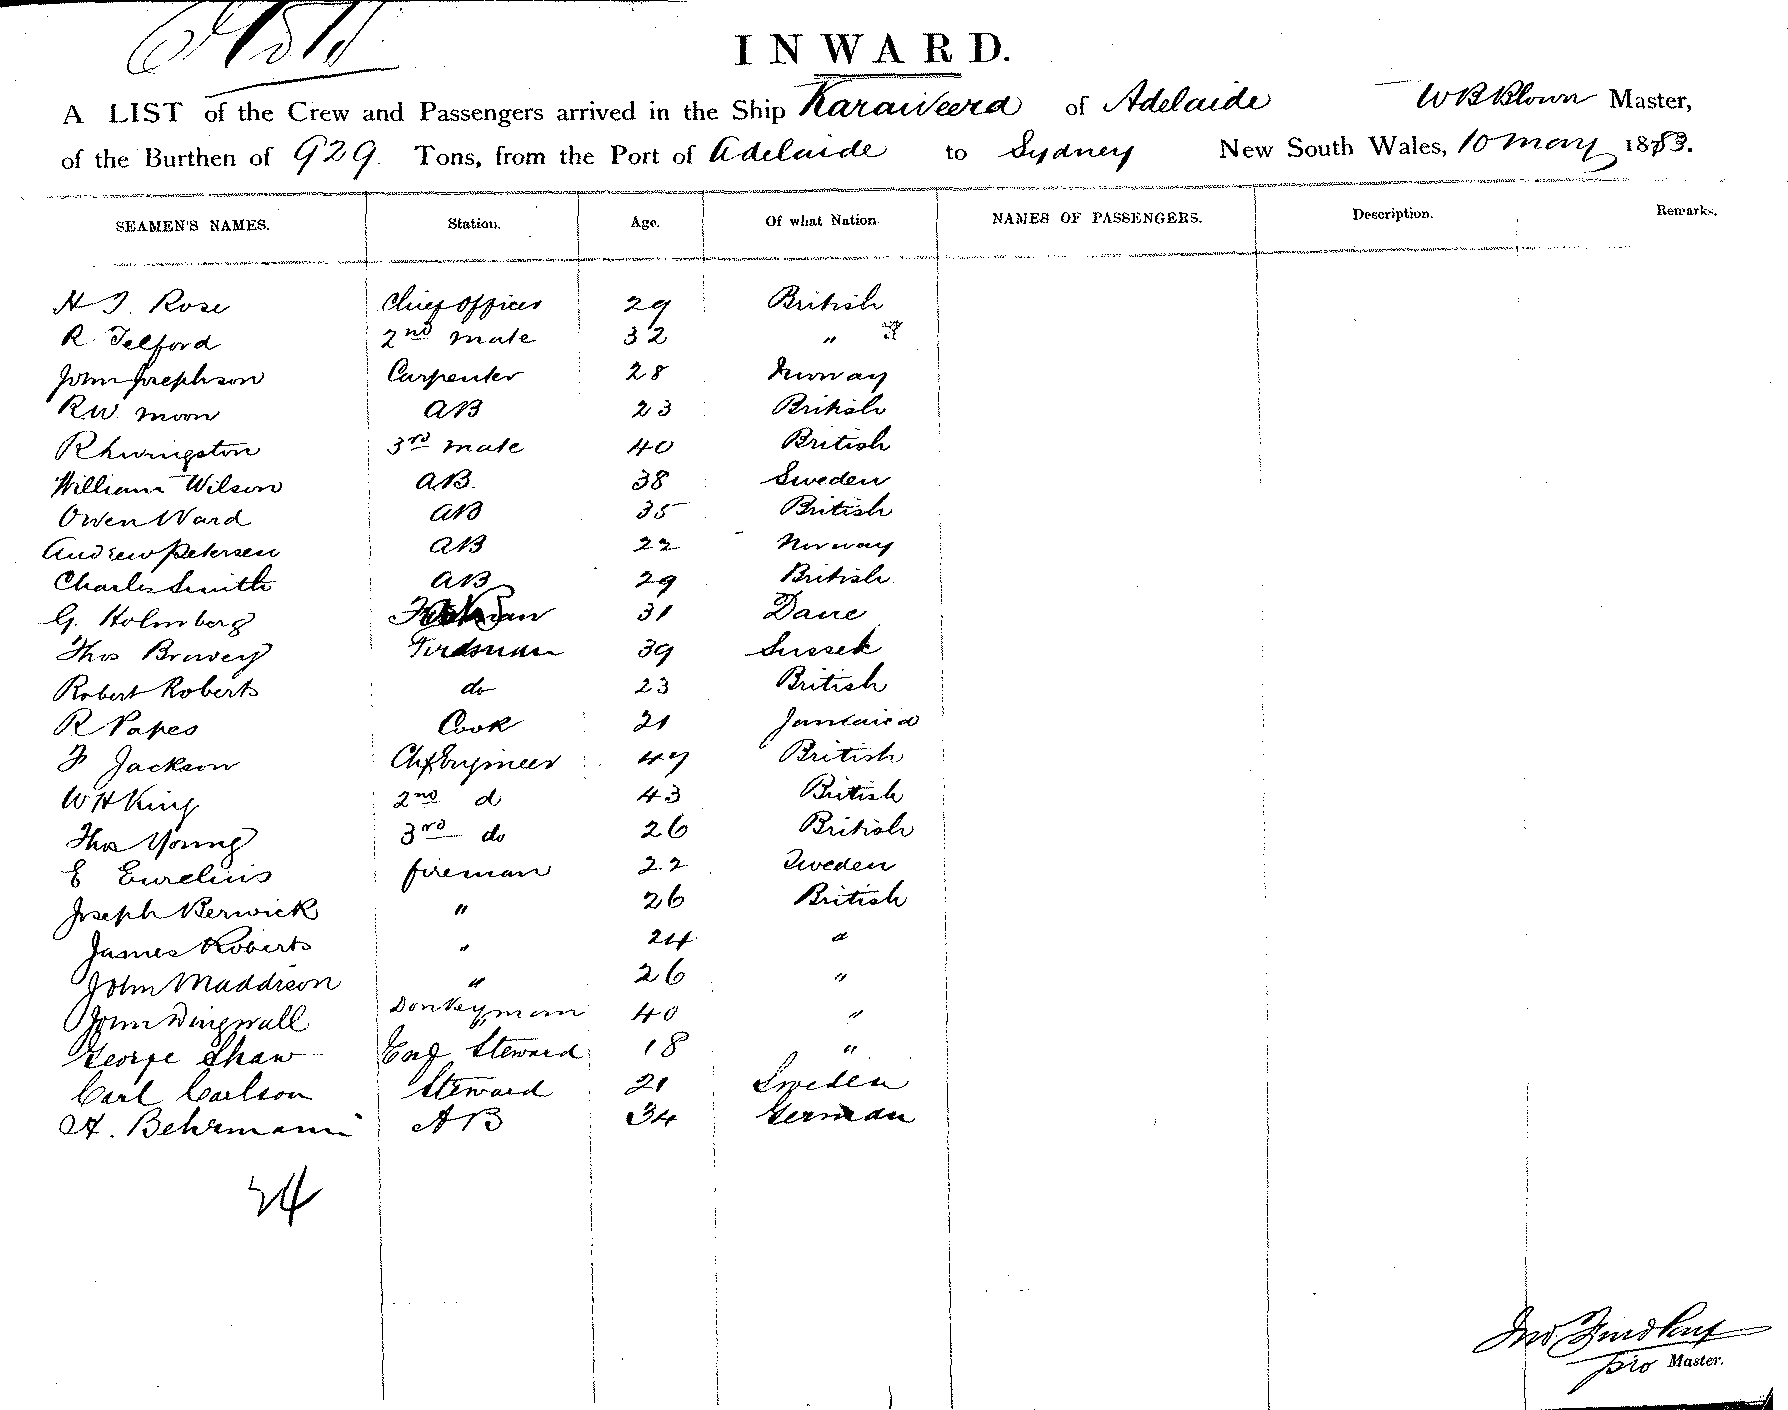 INWARD.
A LIST of the Crew and Passengers arrived in the Ship Karaweera of Adelaide W B Blown Master,
of the Burthen of 929 Tons, from the Port of Adelaide to Sydney New South Wales, 10 May 1883.
SEAMEN'S NAMES. Station. Age. Of what Nation NAMES OF PASSENGERS. Description. Remarks.
H J. Rose Chief Officer 29 British
R. Telford 2nd mate 32 "
John Josephson Carpenter 28 Norway
R W. Moon AB 23 British
R Livingston 3rd mate 40 British
William Wilson AB. 38 Sweden
Owen Ward AB 35 British
Andrew Petersen AB 22 Norway
Charles Smith AB 29 British
G. Holmberg 31 Dane
Thos 39 Sussek
Robert Roberts do 23 British
R Papes Cook 21 Jamaica
F Jackson Chf Engineer 47 British
W H King 2nd d 43 British
Thos Young 3rd do 26 British
E Eurelius fireman 22 Sweden
Joseph Berwick " 26 British
James Roberts " 24 "
John Maddison " 26 "
John Dingwall Donkeyman 40 "
George Shaw Eng Steward 18 "
Carl Carlson Steward 21 Sweden
A. Behrmann AB 34 German
24
Jno
pro Master.